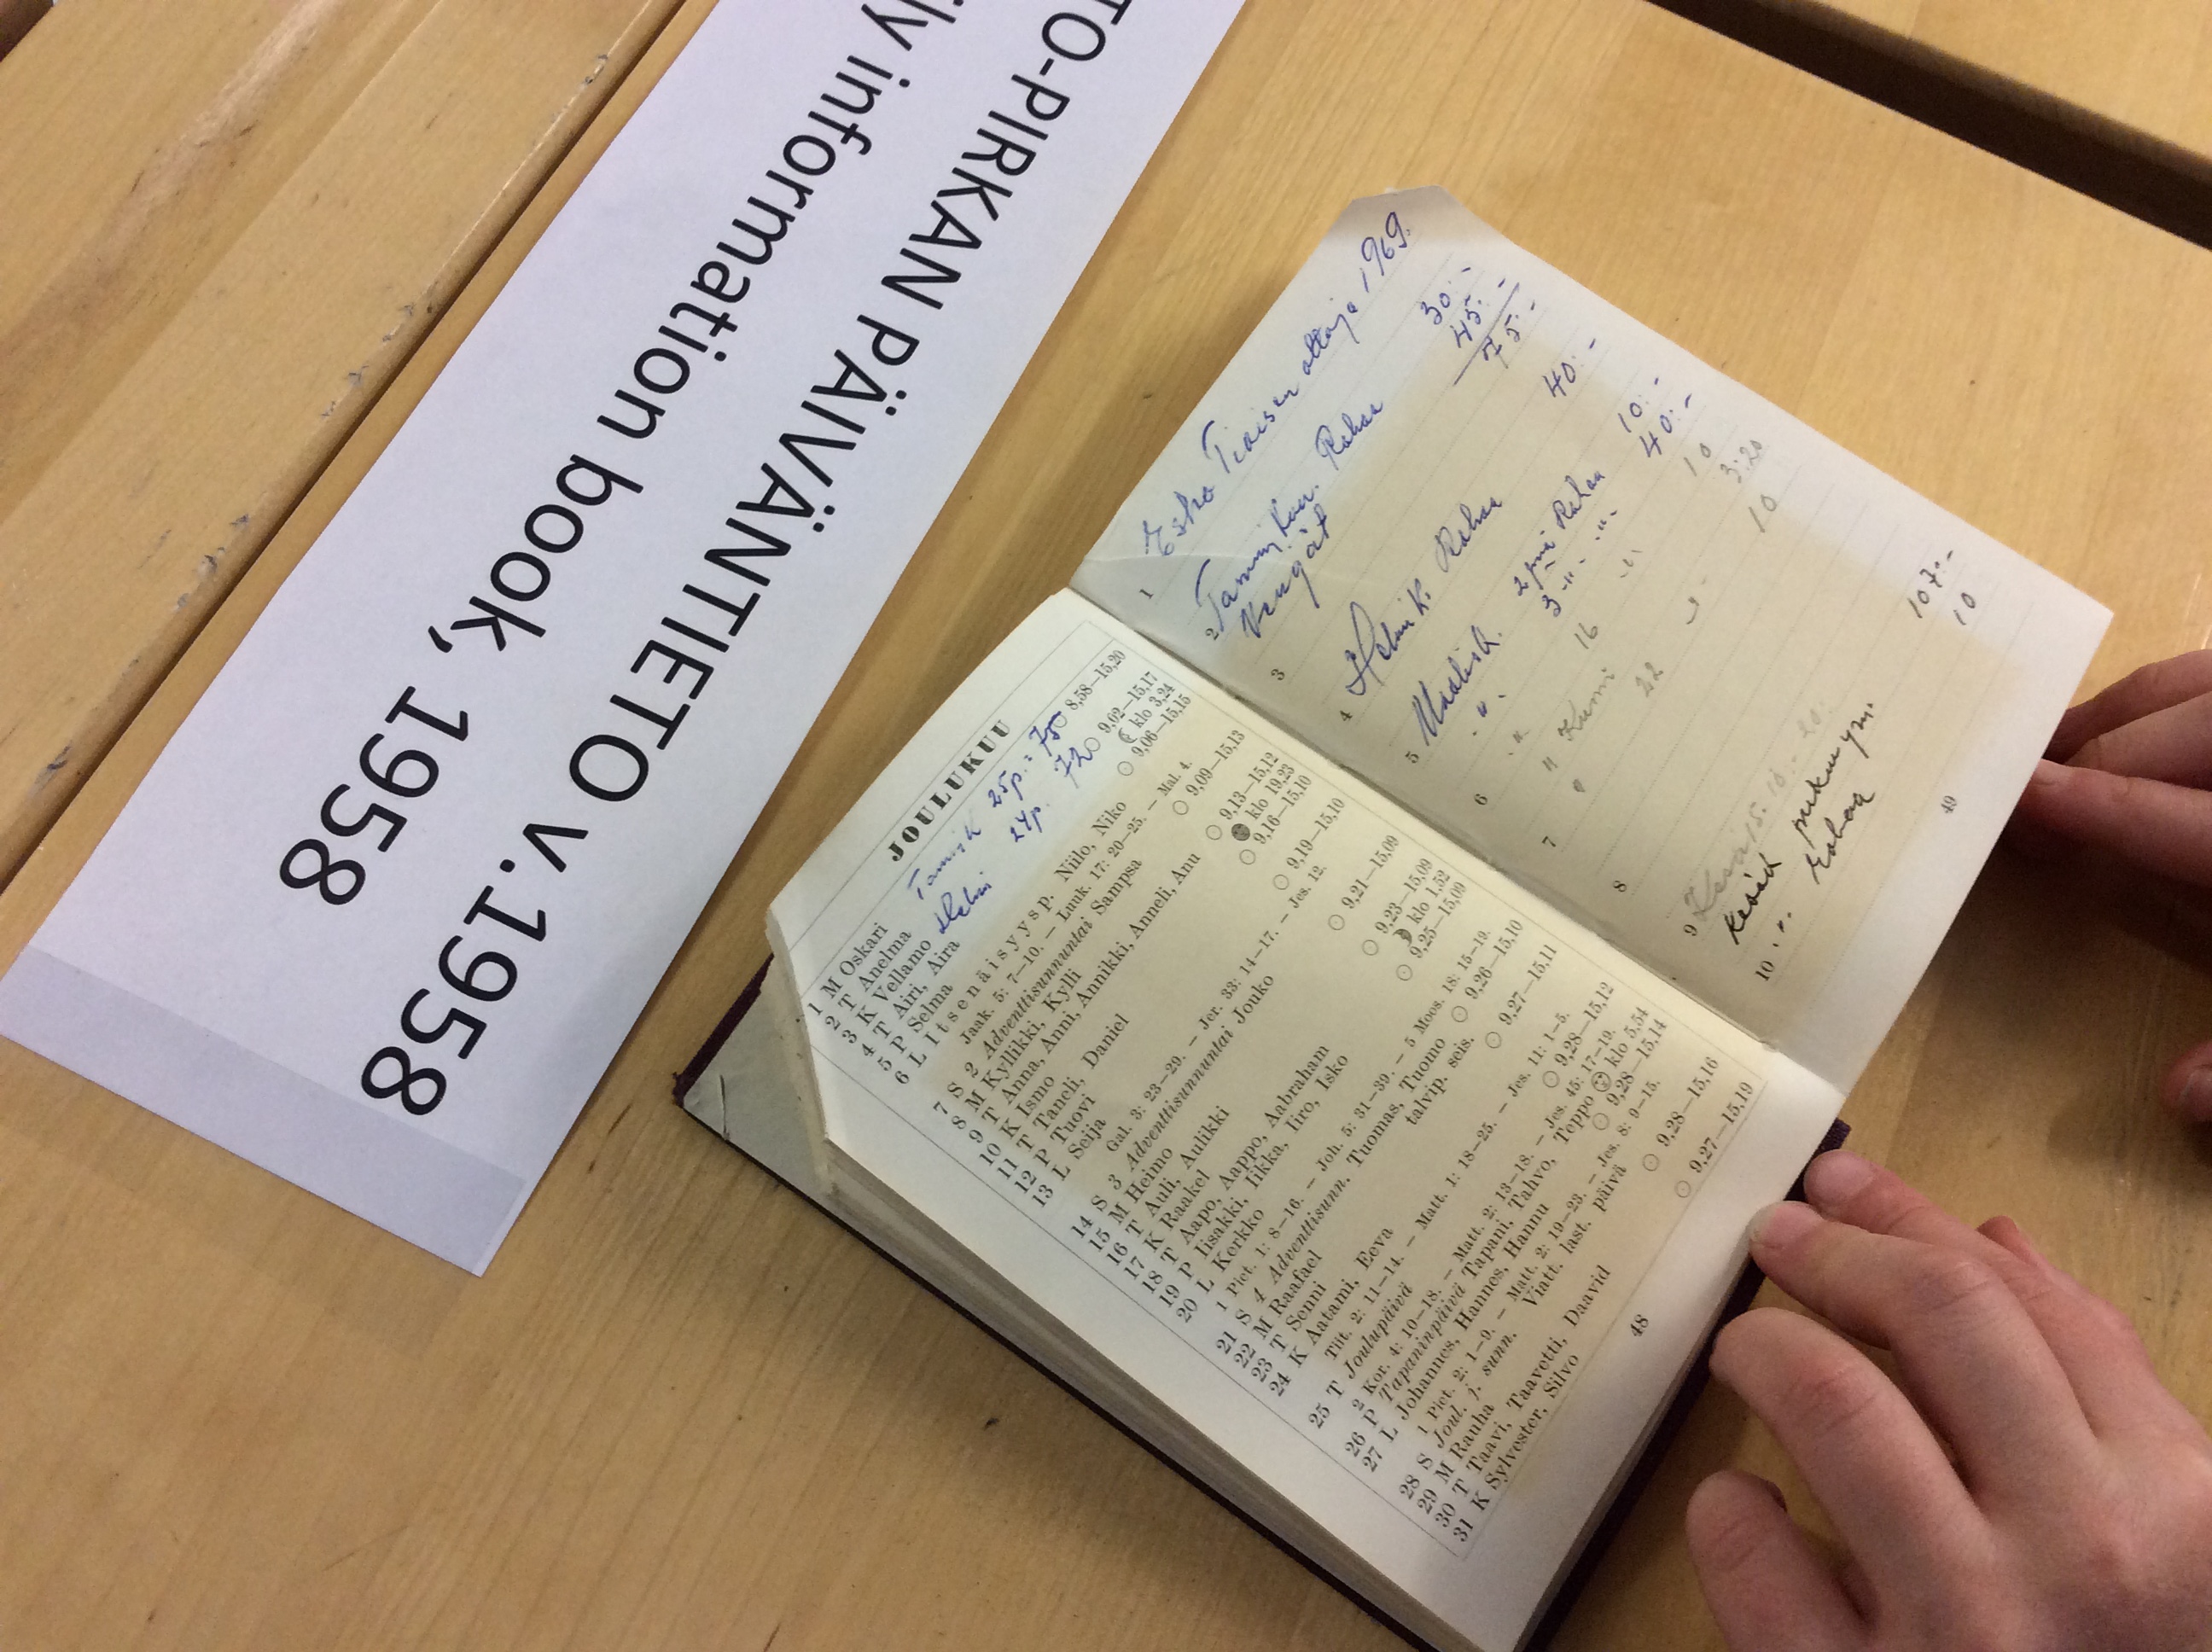 TO-PIRKAN PÄIVÄNTIETO v.1958
ly information book, 1958
JOULUKUU
Tammik 25p. = 750
Helmi 24p. 720
1 M Oskari 8,58—15,20
2 T Anelma
3 K Vellamo 9,02—15,17
4 T Airi, Aira klo 3,24
5 P Selma 9,06—15,15
6 L Itsenäisyysp. Niilo, Niko
Jaak. 5: 7—10. — Luuk. 17: 20—25. — Mal. 4.
7 S 2 Adventtisunnuntai Sampsa 9,09—15,13
8 M Kyllikki, Kylli
9 T Anna, Anni, Annikki, Anneli, Anu 9,13—15,12
10 K Ismo klo 19,23
11 T Taneli, Daniel 9,16—15,10
12 P Tuovi
13 L Seija 9,19—15,10
Gal. 3: 23—29. — Jer. 33: 14—17. — Jes. 12.
14 S 3 Adventtisunnuntai Jouko
15 M Heimo 9,21—15,09
16 T Auli, Aulikki
17 K Raakel 9,23—15,09
18 T Aapo, Aappo, Aabraham klo 1,52
19 P Iisakki, Iikka, Iiro, Isko 9,25—15,09
20 L Kerkko
1 Piet. 1: 8—16. — Joh. 5: 31—39. — 5 Moos. 18: 15—19.
21 S 4 Adventtisunn. Tuomas, Tuomo 9,26—15,10
22 M Raafael talvip. seis.
23 T Senni 9,27—15,11
24 K Aatami, Eeva
Tiit. 2: 11—14. — Matt. 1: 18—25. — Jes. 11: 1—5.
25 T Joulupäivä 9,28—15,12
2 Kor. 4: 10—18. — Matt. 2: 13—18. — Jes. 45: 17—19.
26 P Tapaninpäivä Tapani, Tahvo, Teppo klo 5,54
27 L Johannes, Hannes, Hannu 9,28—15,14
1 Piet. 2: 1—9. — Matt. 2: 19—23. — Jes. 8: 9—15.
28 S Joul. j. sunn. Viatt. last. päivä
29 M Rauha 9,28—15,16
30 T Taavi, Taavetti, Daavid
31 K Sylvester, Silvo 9,27—15,19
48
1 Esko Tiaisen ottaja 1969.
2 Tammikuu. Rahaa 30:-
Vengät 45:-
3 75:-
4 Helmi K. Rahaa 40:-
5 Maalisk. 2 pnä Rahaa 10:-
" 3 -"- -"- 40:-
6 " 16 " 10
7 " Kumi 3:20
" 22 " 10
8
9
Kesäk
10 " Rahaa
107:-
10
49